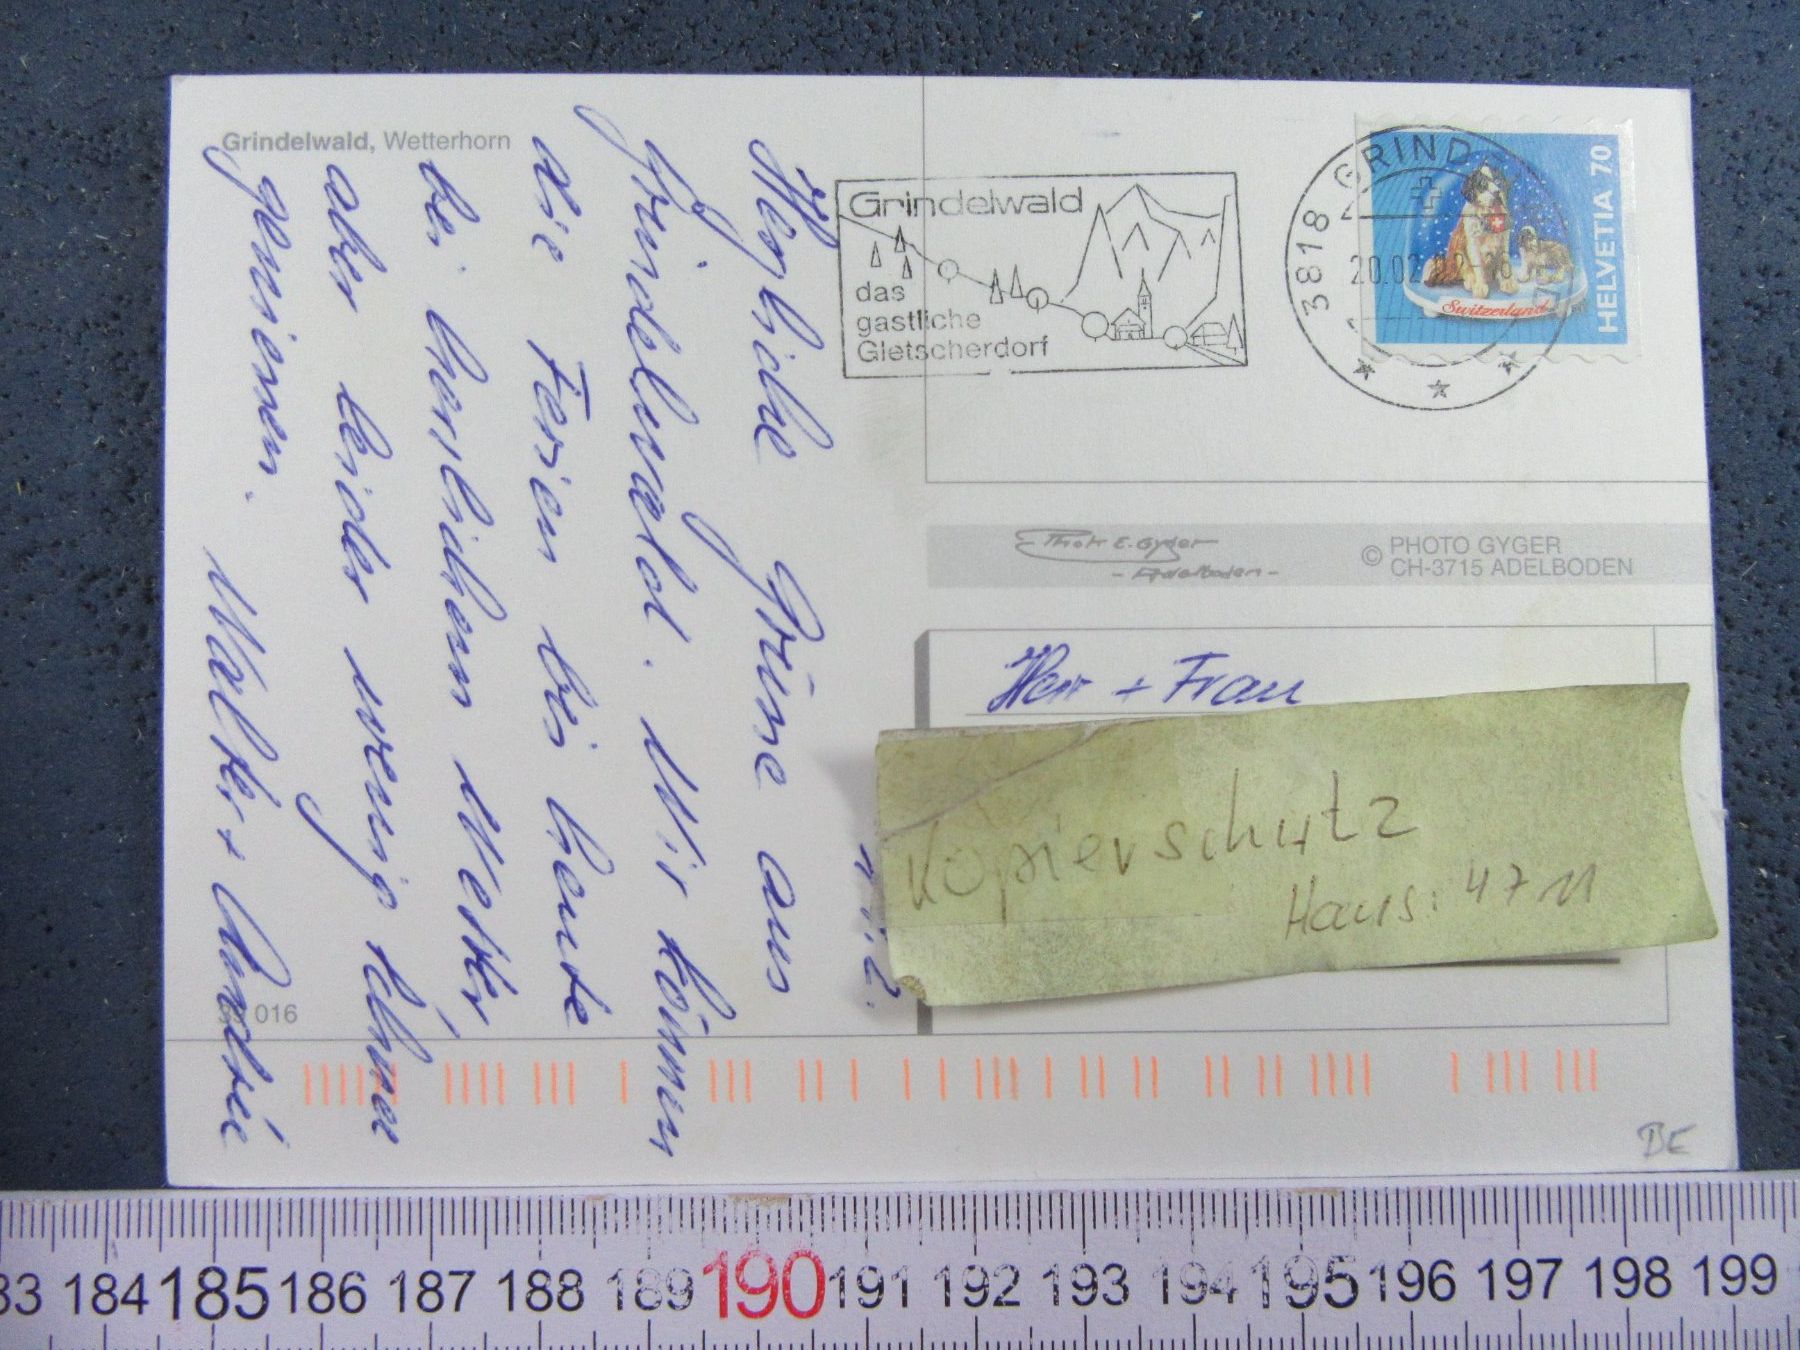 Grindelwald, Wetterhorn
Herzliche Grüsse aus
Grindelwald. Wir können
die Ferien bis heute
bei herrlichem Wetter
aber leider wenig Schnee
geniessen.
Walter +
016
Grindelwald
das
gastliche
Gletscherdorf
3818 GRIND
20.02.
HELVETIA 70
Switzerland
Photo E. Gyger
- Adelboden -
© PHOTO GYGER
CH-3715 ADELBODEN
Herr + Frau
Kopierschutz
Haus: 4711
BE
184 185 186 187 188 189 190 191 192 193 194 195 196 197 198 199